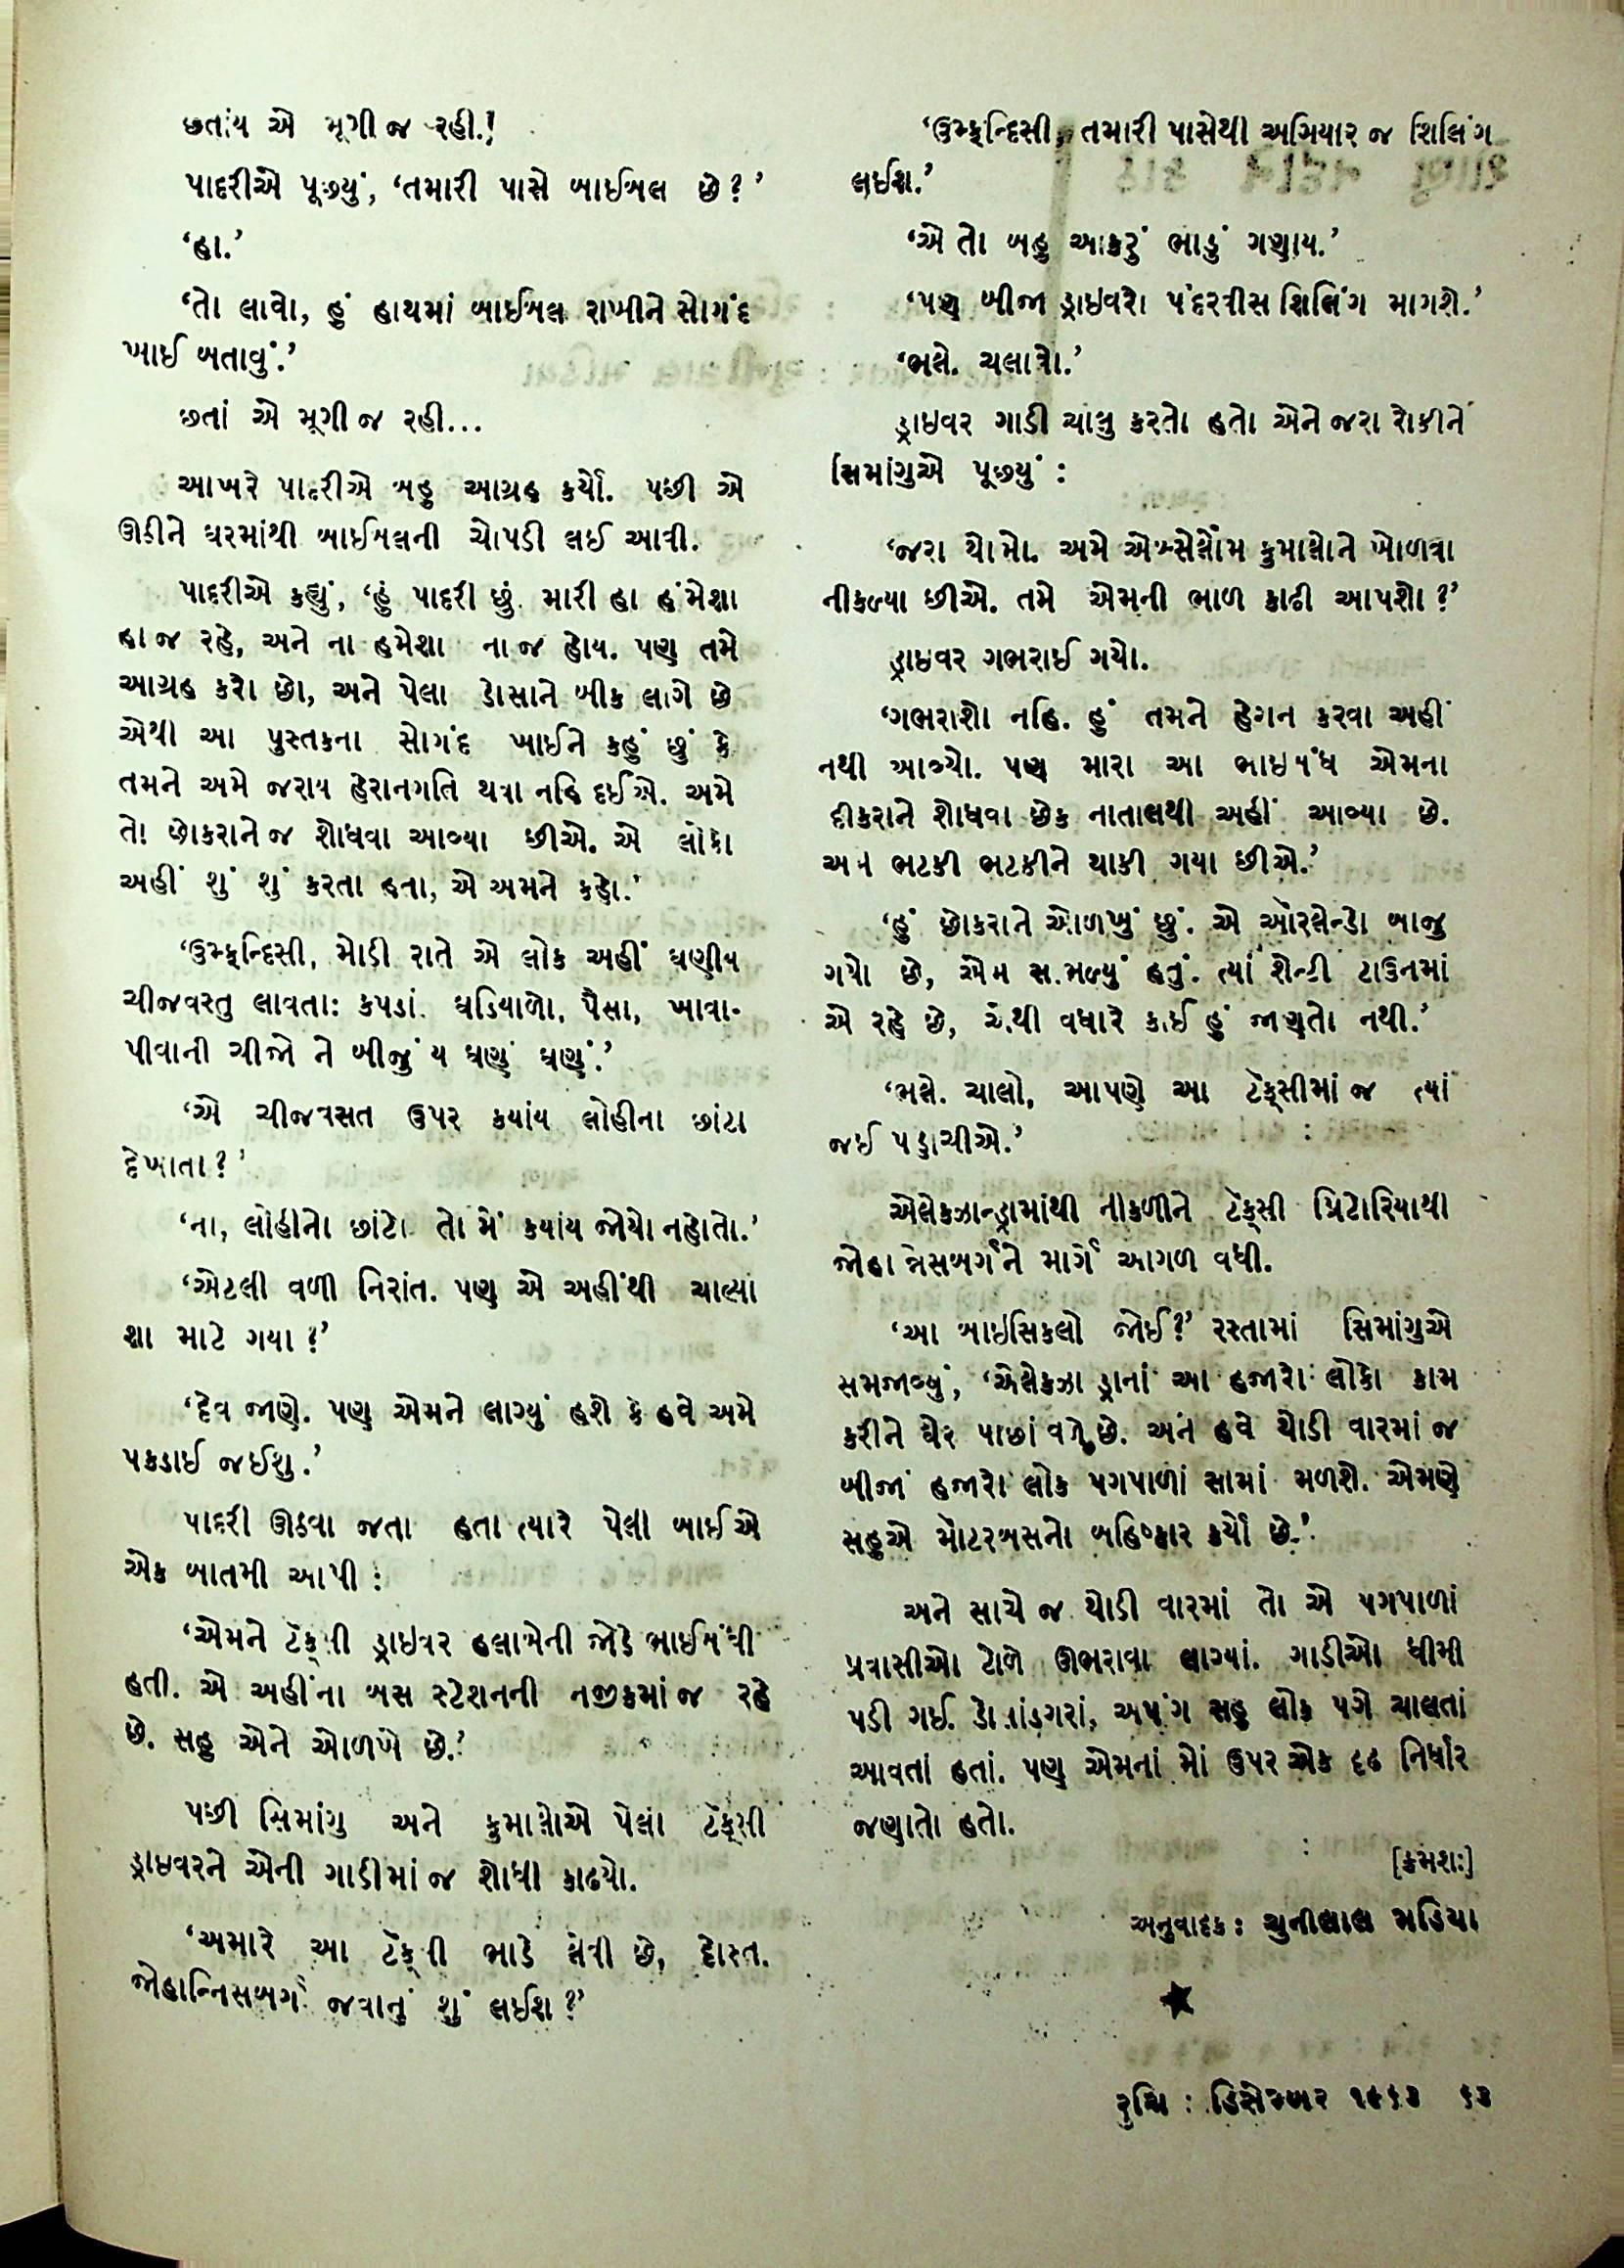 છતાંય એ મૂગી જ રહી.!
પાદરીએ પૂછ્યું, ‘તમારી પાસે બાઈબલ છે?’
‘હા.’
‘તો લાવો, હું હાથમાં બાઈબલ રાખીને સોગંદ
ખાઈ બતાવું.’
છતાં એ મૂગી જ રહી...
આખરે પાદરીએ બહુ આગ્રહ કર્યો. પછી એ
ઊઠીને ઘરમાંથી બાઈબલની ચોપડી લઈ આવી.
પાદરીએ કહ્યું, ‘હું પાદરી છું. મારી હા હંમેશા
હા જ રહે, અને ના હમેશા ના જ હોય. પણ તમે
આગ્રહ કરો છો, અને પેલા ડોસાને બીક લાગે છે
એથી આ પુસ્તકના સોગંદ ખાઈને કહું છું કે
તમને અમે જરાય હેરાનગતિ થવા નહિ દઈએ. અમે
તો છોકરાને જ શોધવા આવ્યા છીએ. એ લોકો
અહીં શું શું કરતા હતા, એ અમને કહો.’
‘ઉમ્ફન્દિસી, મોડી રાતે એ લોક અહીં ઘણીય
ચીજવસ્તુ લાવતા: કપડાં. ઘડિયાળો, પૈસા, ખાવા-
પીવાની ચીજો ને બીજું ય ઘણું ઘણું.’
‘એ ચીજવસત ઉપર કયાંય લોહીના છાંટા
દેખાતા?’
‘ના, લોહીનો છાંટો તો મેં કયાંય જોયો નહોતો.’
‘એટલી વળી નિરાંત. પણ એ અહીંથી ચાલ્યા
શા માટે ગયા?’
‘દેવ જાણે. પણ એમને લાગ્યું હશે કે હવે અમે
પકડાઈ જઈશુ.’
પાદરી ઊઠવા જતા હતા ત્યારે પેલી બાઈએ
એક બાતમી આપી:
‘એમને ટૅક્સી ડ્રાઇવર હલાબેની જોડે ભાઈબંધી
હતી. એ અહીંના બસ સ્ટેશનની નજીકમાં જ રહે
છે. સહુ એને ઓળખે છે.’
પછી સિમાંગુ અને કુમાલોએ પેલા ટૅક્સી
ડ્રાઇવરને એની ગાડીમાં જ શોધી કાઢયો.
‘અમારે આ ટૅક્સી ભાડે લેવી છે, દોસ્ત.
જોહાન્નિસબર્ગ જવાનું શું લઈશ?’
‘ઉમ્ફન્દિસી, તમારી પાસેથી અગિયાર જ શિલિંગ
લઈશ.’
‘એ તો બહુ આકરું ભાડું ગણાય.’
‘પણ બીજા ડ્રાઇવરો પંદરવીસ શિલિંગ માગશે.’
‘ભલે. ચલાવો.’
ડ્રાઇવર ગાડી ચાલુ કરતો હતો એને જરા રોકીને
સિમાંગુએ પૂછયું:
‘જરા થોભો. અમે એબ્સેલોમ કુમાલોને ખોળવા
નીકળ્યા છીએ. તમે એમની ભાળ કાઢી આપશો?’
ડ્રાઇવર ગભરાઈ ગયો.
‘ગભરાશો નહિ. હું તમને હેરાન કરવા અહીં
નથી આવ્યો. પણ મારા આ ભાઇબંધ એમના
દીકરાને શોધવા છેક નાતાલથી અહીં આવ્યા છે.
અને ભટકી ભટકીને થાકી ગયા છીએ.’
‘હું છોકરાને ઓળખું છું. એ ઑરલેન્ડો બાજુ
ગયો છે, એમ સાંભળ્યું હતું. ત્યાં શૅન્ટી ટાઉનમાં
એ રહે છે, એથી વધારે કાઈ હું જાણતો નથી.’
‘ભલે. ચાલો, આપણે આ ટૅક્સીમાં જ ત્યાં
જઈ પહોંચીએ.’
એલેકઝાન્ડ્રામાંથી નીકળીને ટૅક્સી પ્રિટોરિયાથી
જોહાન્નેસબર્ગને માર્ગે આગળ વધી.
‘આ બાઇસિકલો જોઈ?’ રસ્તામાં સિમાંગુએ
સમજાવ્યું, ‘એલેકઝાન્ડ્રાનાં આ હજારો લોકો કામ
કરીને ઘેર પાછાં વળે છે. અને હવે થોડી વારમાં જ
બીજાં હજારો લોક પગપાળાં સામાં મળશે. એમણે
સહુએ મોટરબસનો બહિષ્કાર કર્યો છે.’
અને સાચે જ થોડી વારમાં તો એ પગપાળાં
પ્રવાસીઓ ટોળે ઊભરાવા લાગ્યાં. ગાડીઓ ધીમી
પડી ગઈ. ડોસાંડગરાં, અપંગ સહુ લોક પગે ચાલતાં
આવતાં હતાં. પણ એમનાં મોં ઉપર એક દૃઢ નિર્ધાર
જણાતો હતો.
[ક્રમશઃ]
અનુવાદક: ચુનીલાલ મડિયા
રુચિ : ડિસેમ્બર ૧૯૬૩ ૬૩